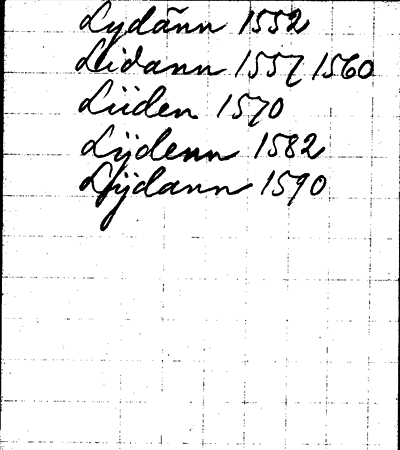 Lydānn 1552
Lidann 1557 1560
Liiden 1570
Lijdenn 1582
Lijdann 1590